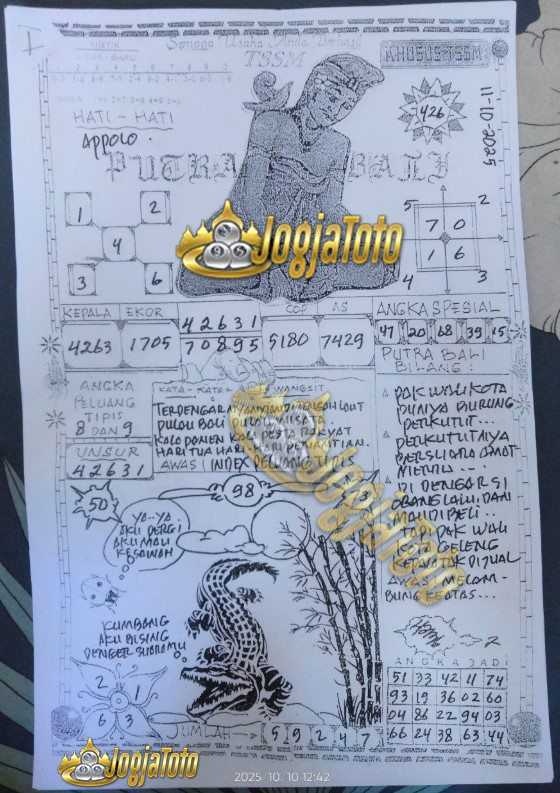 MISTIK
Semoga Usaha Anda Berhasil
TSSM
KHUSUS TSSM
HATI - HATI
APPOLO.
PUTRA BALI
11-10-2025
426
1 2
4
3 6
5 2
7 0
1 6
4 3
JogjaToto
KEPALA EKOR
4263 1705
42631
70895
COP AS
9180 7429
ANGKA SPESIAL
47 20 68 39 15
PUTRA BALI
BILANG :
PAK WALIKOTA
PUNYA BURUNG
PERKUTUT...
PERKUTUTNYA
BERSUARA AMAT
MERDU...
DI DENGAR SI
ABANG LALU, DAN
MAU DI BELI..
TAPI PAK WALI
KOTA GELENG
AWAS! MELAM-
BUNG KEATAS...
ANGKA
PELUANG
TIPIS
8 DAN 9
UNSUR
42631
KATA - KATA WANGSIT
TERDENGAR DITENGAH LAUT
PULAU BALI PULAU WISATA
KALO PANEN KALA PESTA RAKYAT
HARI TUA HARI HARI PENANTIAN.
AWAS! INDEX PELUANG TIPIS
JogjaToto
50
98
YA-YA
AKU PERGI
AKU MAU
KESAWAH
KUMBANG
AKU BISING
DENGER SUARAMU
2 1
6 3
2
ANGKA JADI
51 33 42 11 74
93 19 36 02 60
04 86 22 94 03
66 24 38 63 44
JUMLAH 5 9 2 4 7
JogjaToto
2025/10.10 12:42